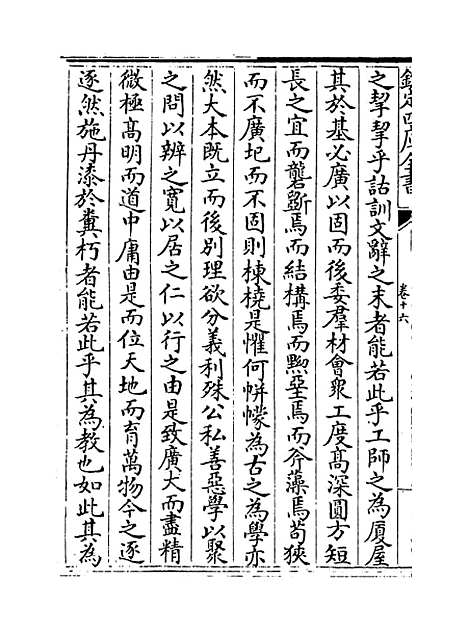 欽定四庫全書
卷十六
之挈挈乎詁訓文辭之末者能若此乎工師之為厦屋
其於基必廣以固而後委羣材會衆工度高深圓方短
長之宜而礱斲焉而結構焉而黝堊焉而斧藻焉茍狹
而不廣圮而不固則棟橈是懼何帡幪為古之為學亦
然大本既立而後別理欲分義利殊公私善惡學以聚
之問以辨之寛以居之仁以行之由是致廣大而盡精
微極髙明而道中庸由是而位天地而育萬物今之逐
逐然施丹漆於糞朽者能若此乎其為教也如此其為